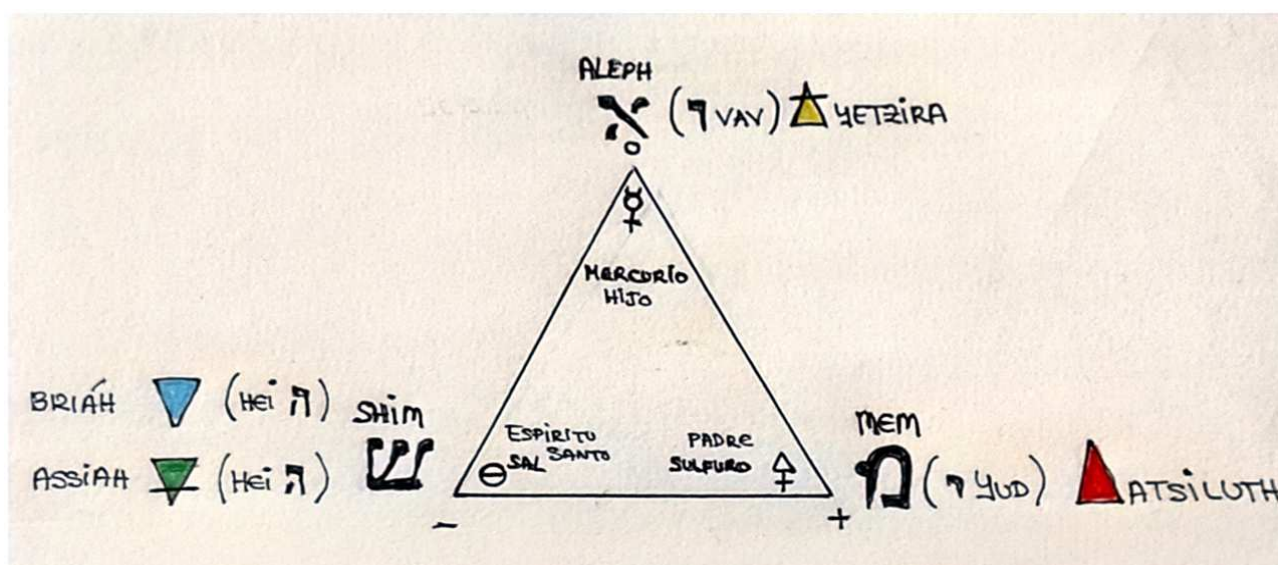 ALEPH
א (ו VAV) YETZIRA
O
☿
MERCURIO
HIJO
BRIÁH (HEI ה) SHIM
ASSIAH (HEI ה) ש
ESPIRITU
SANTO
SAL
PADRE
SULFURO
MEM
מ (י YUD) ATSILUTH
- +